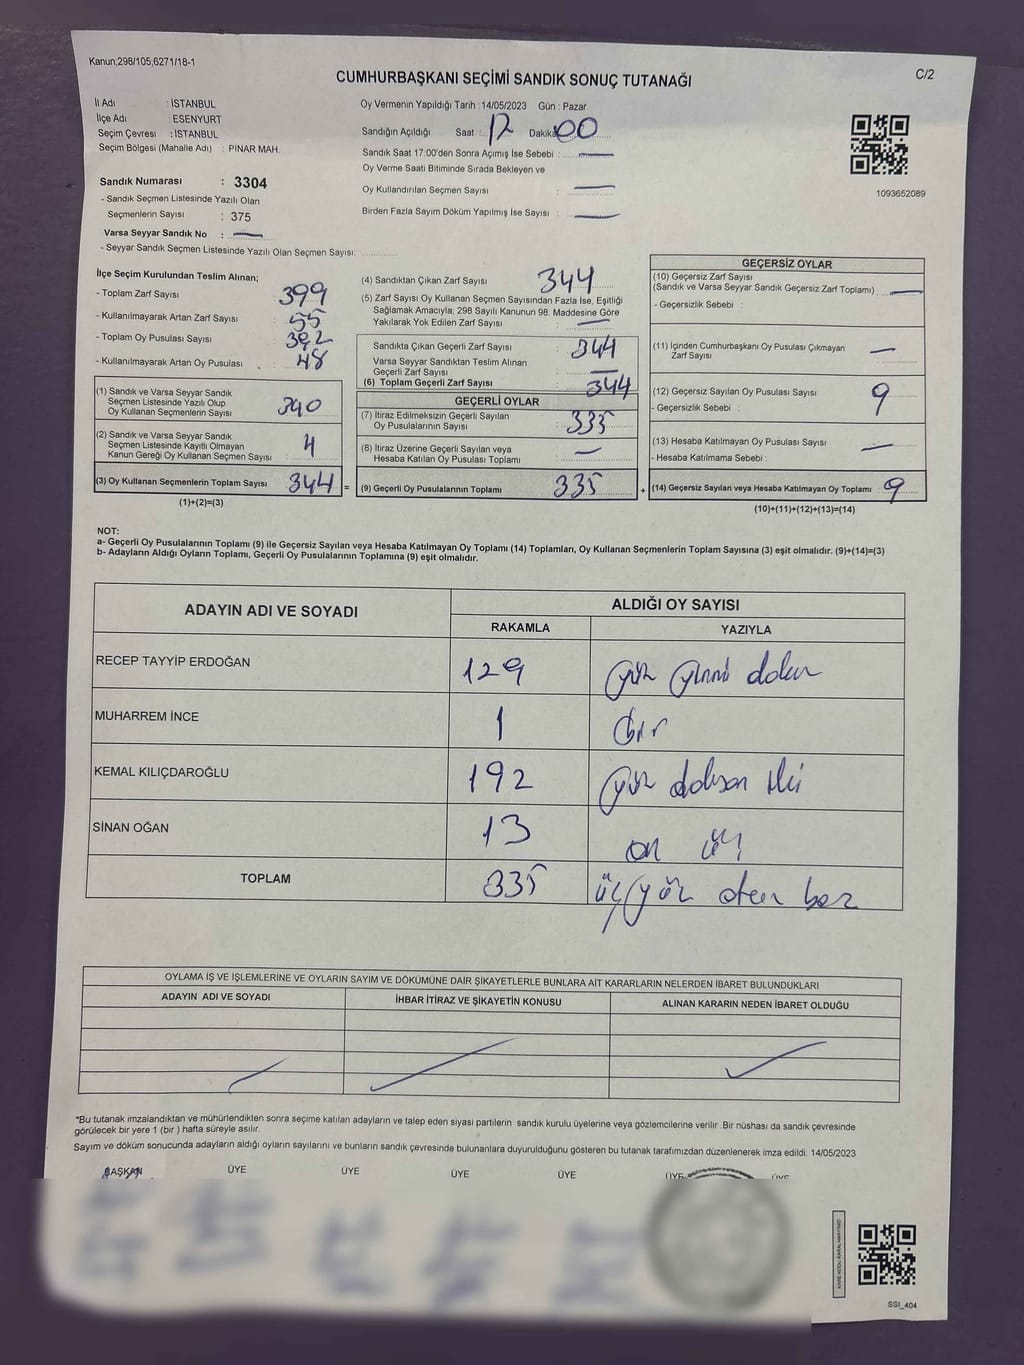 Kanun;298/105;6271/18-1
CUMHURBAŞKANI SEÇİMİ SANDIK SONUÇ TUTANAĞI
C/2
İl Adı : İSTANBUL
İlçe Adı : ESENYURT
Seçim Çevresi : İSTANBUL
Seçim Bölgesi (Mahalle Adı) : PINAR MAH.
Oy Vermenin Yapıldığı Tarih : 14/05/2023 Gün : Pazar
Sandığın Açıldığı Saat : 17 Dakika 00
Sandık Saat 17:00'den Sonra Açımış İse Sebebi : —
Oy Verme Saati Bitiminde Sırada Bekleyen ve
Oy Kullandırılan Seçmen Sayısı : —
Birden Fazla Sayım Döküm Yapılmış İse Sayısı : —
1093652089
Sandık Numarası : 3304
- Sandık Seçmen Listesinde Yazılı Olan
Seçmenlerin Sayısı : 375
Varsa Seyyar Sandık No : —
- Seyyar Sandık Seçmen Listesinde Yazılı Olan Seçmen Sayısı:
İlçe Seçim Kurulundan Teslim Alınan;
- Toplam Zarf Sayısı : 399
- Kullanılmayarak Artan Zarf Sayısı : 55
- Toplam Oy Pusulası Sayısı : 392
- Kullanılmayarak Artan Oy Pusulası : 48
(1) Sandık ve Varsa Seyyar Sandık
Seçmen Listesinde Yazılı Olup
Oy Kullanan Seçmenlerin Sayısı : 340
(2) Sandık ve Varsa Seyyar Sandık
Seçmen Listesinde Kayıtlı Olmayan
Kanun Gereği Oy Kullanan Seçmen Sayısı : 4
(3) Oy Kullanan Seçmenlerin Toplam Sayısı : 344 =
(1)+(2)=(3)
(4) Sandıktan Çıkan Zarf Sayısı : 344
(5) Zarf Sayısı Oy Kullanan Seçmen Sayısından Fazla İse, Eşitliği
Sağlamak Amacıyla; 298 Sayılı Kanunun 98. Maddesine Göre
Yakılarak Yok Edilen Zarf Sayısı : —
Sandıkta Çıkan Geçerli Zarf Sayısı : 344
Varsa Seyyar Sandıktan Teslim Alınan
Geçerli Zarf Sayısı : —
(6) Toplam Geçerli Zarf Sayısı : 344
GEÇERLİ OYLAR
(7) İtiraz Edilmeksizin Geçerli Sayılan
Oy Pusulalarının Sayısı : 335
(8) İtiraz Üzerine Geçerli Sayılan veya
Hesaba Katılan Oy Pusulası Toplamı : —
(9) Geçerli Oy Pusulalarının Toplamı : 335 +
GEÇERSİZ OYLAR
(10) Geçersiz Zarf Sayısı
(Sandık ve Varsa Seyyar Sandık Geçersiz Zarf Toplamı) : —
- Geçersizlik Sebebi :
(11) İçinden Cumhurbaşkanı Oy Pusulası Çıkmayan
Zarf Sayısı : —
(12) Geçersiz Sayılan Oy Pusulası Sayısı : 9
- Geçersizlik Sebebi :
(13) Hesaba Katılmayan Oy Pusulası Sayısı : —
- Hesaba Katılmama Sebebi :
(14) Geçersiz Sayılan veya Hesaba Katılmayan Oy Toplamı : 9
(10)+(11)+(12)+(13)=(14)
NOT:
a- Geçerli Oy Pusulalarının Toplamı (9) ile Geçersiz Sayılan veya Hesaba Katılmayan Oy Toplamı (14) Toplamları, Oy Kullanan Seçmenlerin Toplam Sayısına (3) eşit olmalıdır. (9)+(14)=(3)
b- Adayların Aldığı Oyların Toplamı, Geçerli Oy Pusulalarının Toplamına (9) eşit olmalıdır.
ADAYIN ADI VE SOYADI ALDIĞI OY SAYISI
RAKAMLA YAZIYLA
RECEP TAYYİP ERDOĞAN 129 yüz yirmi dokuz
MUHARREM İNCE 1 bir
KEMAL KILIÇDAROĞLU 192 yüz doksan iki
SİNAN OĞAN 13 on üç
TOPLAM 335 üç yüz otuz beş
OYLAMA İŞ VE İŞLEMLERİNE VE OYLARIN SAYIM VE DÖKÜMÜNE DAİR ŞİKAYETLERLE BUNLARA AİT KARARLARIN NELERDEN İBARET BULUNDUKLARI
ADAYIN ADI VE SOYADI İHBAR İTİRAZ VE ŞİKAYETİN KONUSU ALINAN KARARIN NEDEN İBARET OLDUĞU
*Bu tutanak imzalandıktan ve mühürlendikten sonra seçime katılan adayların ve talep eden siyasi partilerin sandık kurulu üyelerine veya gözlemcilerine verilir .Bir nüshası da sandık çevresinde
görülecek bir yere 1 (bir ) hafta süreyle asılır.
Sayım ve döküm sonucunda adayların aldığı oyların sayılarını ve bunların sandık çevresinde bulunanlara duyurulduğunu gösteren bu tutanak tarafımızdan düzenlenerek imza edildi. 14/05/2023
BAŞKAN ÜYE ÜYE ÜYE ÜYE ÜYE ÜYE
SSI_404